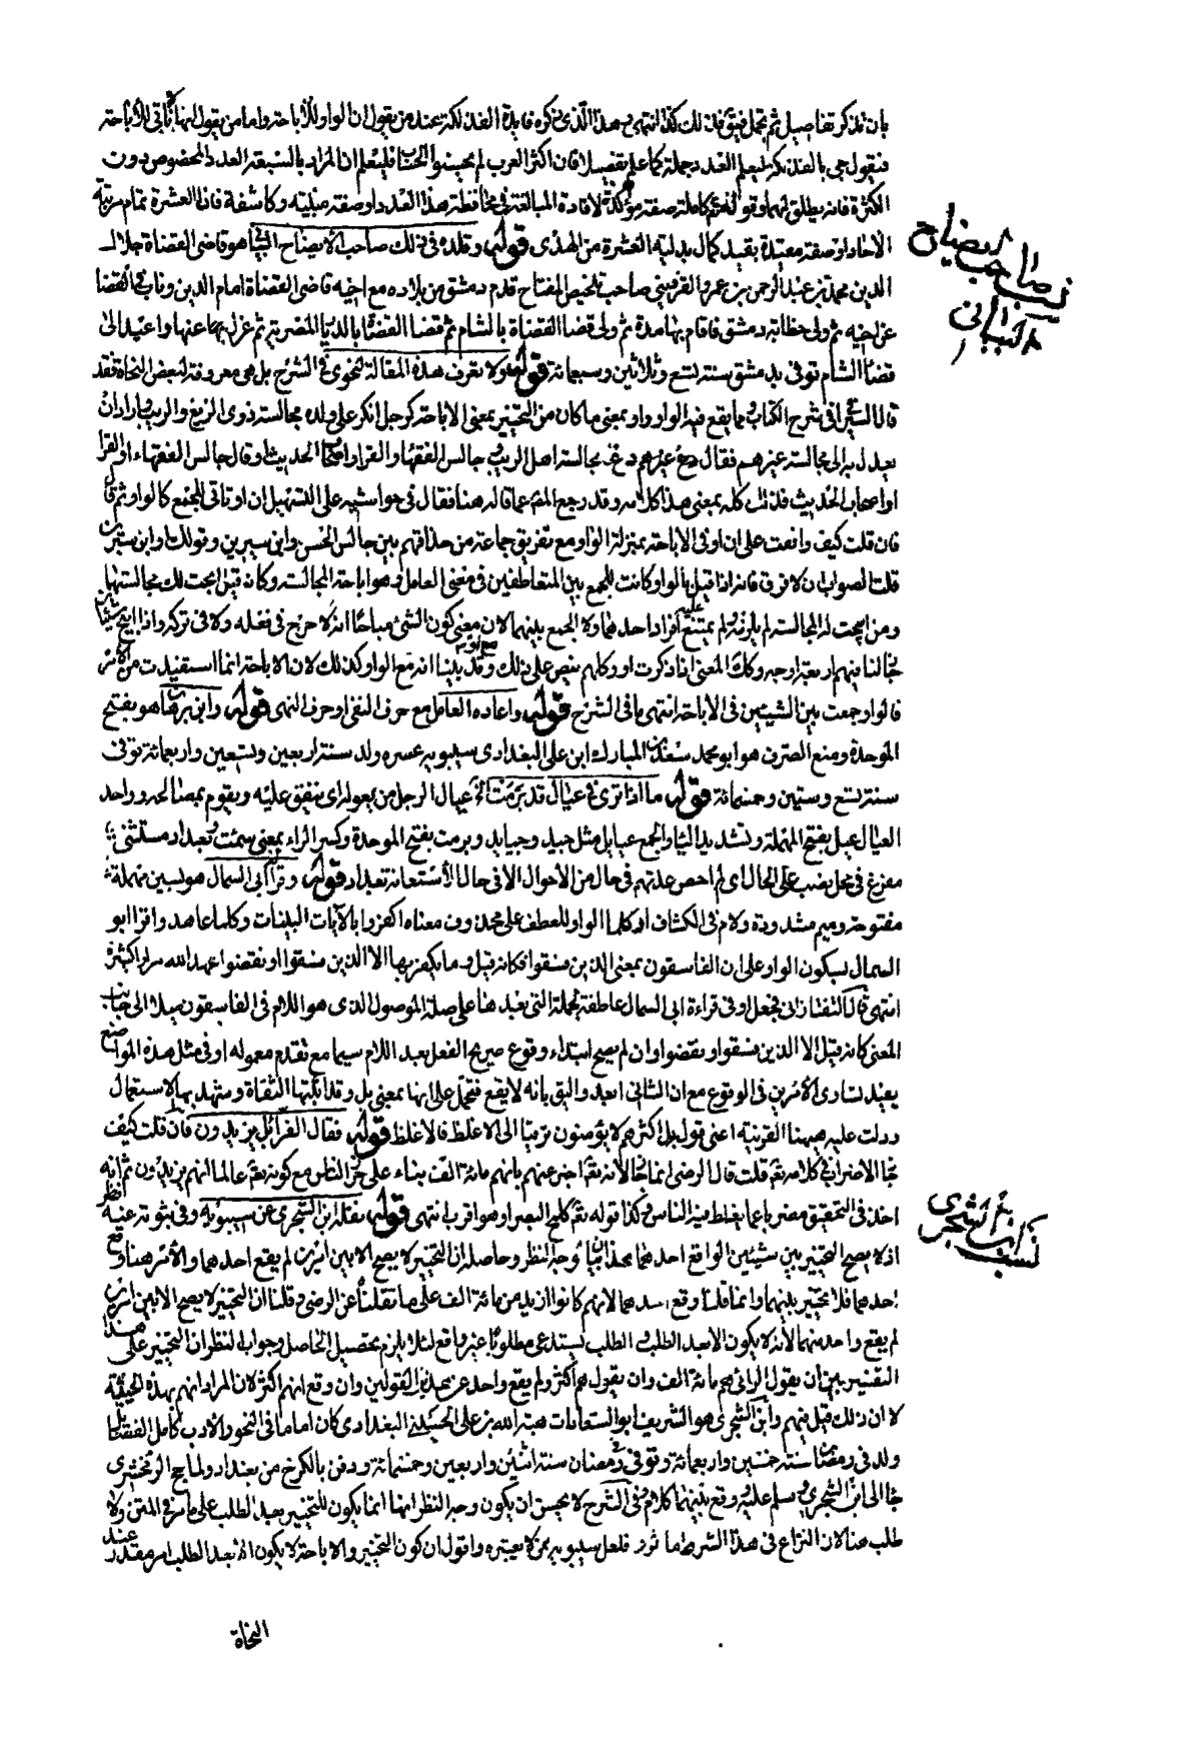 بان تذكر تفاصيل ثم تجمل فيق فذلك كذا انتهى وهذا الذى ذكره فايدة الفذلكة عند من يقول ان الواو للاباحة واما من يقول انها تاتى للاباحة
فيقول جى بالفذلكة ليعلم العدد جملة كما علم تفصيلا فان اكثر العرب لم يحسنوا الحساب فليعلم ان المراد بالسبعة العدد المخصوص دون
الكثرة فانه يطلق لهما وقوله تعم كاملة صفة مؤكدة لافادة المبالغة فى محافظة هذا العدد او صفة مبينة وكاشفة فان العشرة تمام مرتبة
الاحاد او صفة مقيدة بقيد كمال بدلية العشرة من الهدى قوله وقلده فى ذلك صاحب الايضاح البيانى هو قاضى القضاة جلال
الدين محمد بن عبد الرحمن بن عمر والقزوينى صاحب تلخيص المفتاح قدم دمشق من بلاده مع اخيه قاضى القضاة امام الدين وناب فى القضا
عن اخيه ثم ولى خطابة دمشق فاقام بها مدة ثم ولى قضا القضاة بالشام ثم قضا القضا بالديار المصرية ثم عزل بها عنها واعيد الى
قضا الشام توفى بدمشق سنة تسع وثلاثين وسبعمائة قوله ولا تعرف هذه المقالة لنحوى فى الشرح بل هى معروفة لبعض النحاة فقد
قال السيرافى شرح الكتاب وما يقع فيه الواو واو بمعنى ما كان من التخيير بمعنى الاباحة كرجل انكر على ولده مجالسة ذوى الزيغ والريب واراد ان
يعدل به الى مجالسة غيرهم فقال دع مجالسة اهل الريب وجالس الفقها والقرا واصحاب الحديث او قال جالس الفقهاء او القرا
او اصحاب الحديث فذلك كله بمعنى هذا كلامه وقد رجع المص عما قاله هنا فقال فى حواشيه على التسهيل ان او تاتى للجمع كالواو ثم قال
فان قلت كيف وافقت على ان او فى الاباحة بمنزلة الواو مع تفريق جماعة من حذاقهم بين جالس الحسن وابن سيرين وقولك او ابن سيرين
قلت الصواب ان لا فرق فانه اذا قيل بالواو كانت للجمع بين المتعاطفين فى معنى العامل وهو اباحة المجالسة وكانه قيل ابحت لك مجالستهما
ومن ابحت له المجالسة لم يلزمه ولم يمتنع عليه افراد احدهما ولا الجمع بينهما لان معنى كون الشئ مباحا انه لا حرج فى فعله ولا فى تركه واذا ابيح شيئان
وكلهم ينص على ذلك وقد بينا انه مع الواو كذلك لان الاباحة انما استفيدت من الامر
قالوا وجمعت بين الشيئين فى الاباحة انتهى ما فى الشرح قوله واعاده العامل مع حرف النفى او حرف النهى قوله وابن برهان هو بفتح
الموحدة ومنع الصرف هو ابو محمد سعيد بن المبارك ابن على البغدادى سيبويه عصره ولد سنة اربعين وتسعين واربعمائة توفى
سنة تسع وستين وخمسمائة قوله ماذا ترى فى عيال قد برمت عيال الرجل من يعوله اى ينفق عليه ويقوم بمصالحه وواحد
العيال عيل بفتح المهملة وتشديد اليا والجمع عيايل مثل جيد وجيايد وبرمت بفتح الموحدة وكسر الراء بمعنى سئمت وبعداد مستثنى
مفرغ فى محل نصب على الحال اى لم احص عدتهم فى حال من الاحوال الا فى حال الاستعانة بعداد قوله وقرا ابى السمال هو بسين مهملة
مفتوحة وميم مشددة ولام فى الكشاف او كلما الواو للعطف على محذوف معناه اكفروا بالآيات البينات وكلما عاهدوا وقرا ابو
السمال بسكون الواو على ان الفاسقون بمعنى الذين فسقوا فكانه قيل وما يكفر بها الا الذين فسقوا او نقضوا عهد الله مرارا كثيرة
انتهى قال التفتازانى فجعل او فى قراءة ابى السمال عاطفة لجملة التى بعدها على صلة الموصول الذى هو اللام فى الفاسقون ميلا الى جانب
المعنى كانه قيل الا الذين فسقوا ونقضوا وان لم يصح ابتداء وقوع صريح الفعل بعد اللام سيما مع تقدم معموله او فى مثل هذه المواضع
يفيد تساوى الامرين فى الوقوع مع ان الثانى ابعد واليق بانه لا يقع فتحمل على انها بمعنى بل وقد اثبتها الثقاة وشهد بها الاستعمال
ودلت عليه ههنا القرينة اعنى قول بل اكثرهم لا يؤمنون ترقيا الى الاغلظ فالاغلظ قوله فقال الفرا بل يزيدون فان قلت كيف
جا الاضراب فى كلامه تعم قلت قال الرضى انما جا لانه تعم اخبر عنهم بانهم مائة الف بناء على حزر الناس مع كونه تعم عالما انهم يزيدون ثم انه
اخذ فى التحقيق مضربا عما يغلط فيه الناس وكذا قوله تعم كلمح البصر او هو اقرب انتهى قوله نقله ابن الشجرى عن سيبويه وفى ثبوته عنه نظر
اذ لا يصح التخيير بين شيئين الواقع احدهما هذا بيان وجه النظر وحاصله ان التخيير لا يصح الا بين امرين لم يقع احدهما والامر هنا وقع
احدهما فلا تخيير بينهما وانما قلنا وقع احدهما لانهم كانوا ازيد من مائة الف على ما نقلناه عن الرضى وقلنا ان التخيير لا يصح الا بين امرين
لم يقع واحد منهما لانه لا يكون الا بعد الطلب والطلب يستدعى مطلوبا غير واقع لئلا يلزم تحصيل الحاصل وجواب النظر ان التخيير على هذا
التفسير بين ان يقول الرائى هم مائة الف وان يقول هم اكثر ولم يقع واحد عن هذين القولين وان وقع انهم اكثر لان المراد انهم بهذه الحيثية
لا ان ذلك قيل فيهم وابن الشجرى هو الشريف ابو السعادات هبة الله بن على الحسنى البغدادى كان اماما فى النحو والادب كامل الفضائل
ولد فى رمضان سنة خمسين واربعمائة وتوفى فى رمضان سنة اثنين واربعين وخمسمائة ودفن بالكرخ من بغداد ولما حج الزمخشرى
جا الى ابن الشجرى وسلم عليه ووقع بينهما كلام وفى الشرح لا يحسن ان يكون وجه النظر انها انما يكون للتخيير بعد الطلب على ما مر فى المتن ولا
طلب هنا لان النزاع فى هذا الشرط فلعل سيبويه ممن لا يعتبره واقول ان كون التخيير والاباحة لا يكون الا بعد الطلب امر مقدر عند
النحاة
صاحب الايضاح
نسب ابن الشجرى